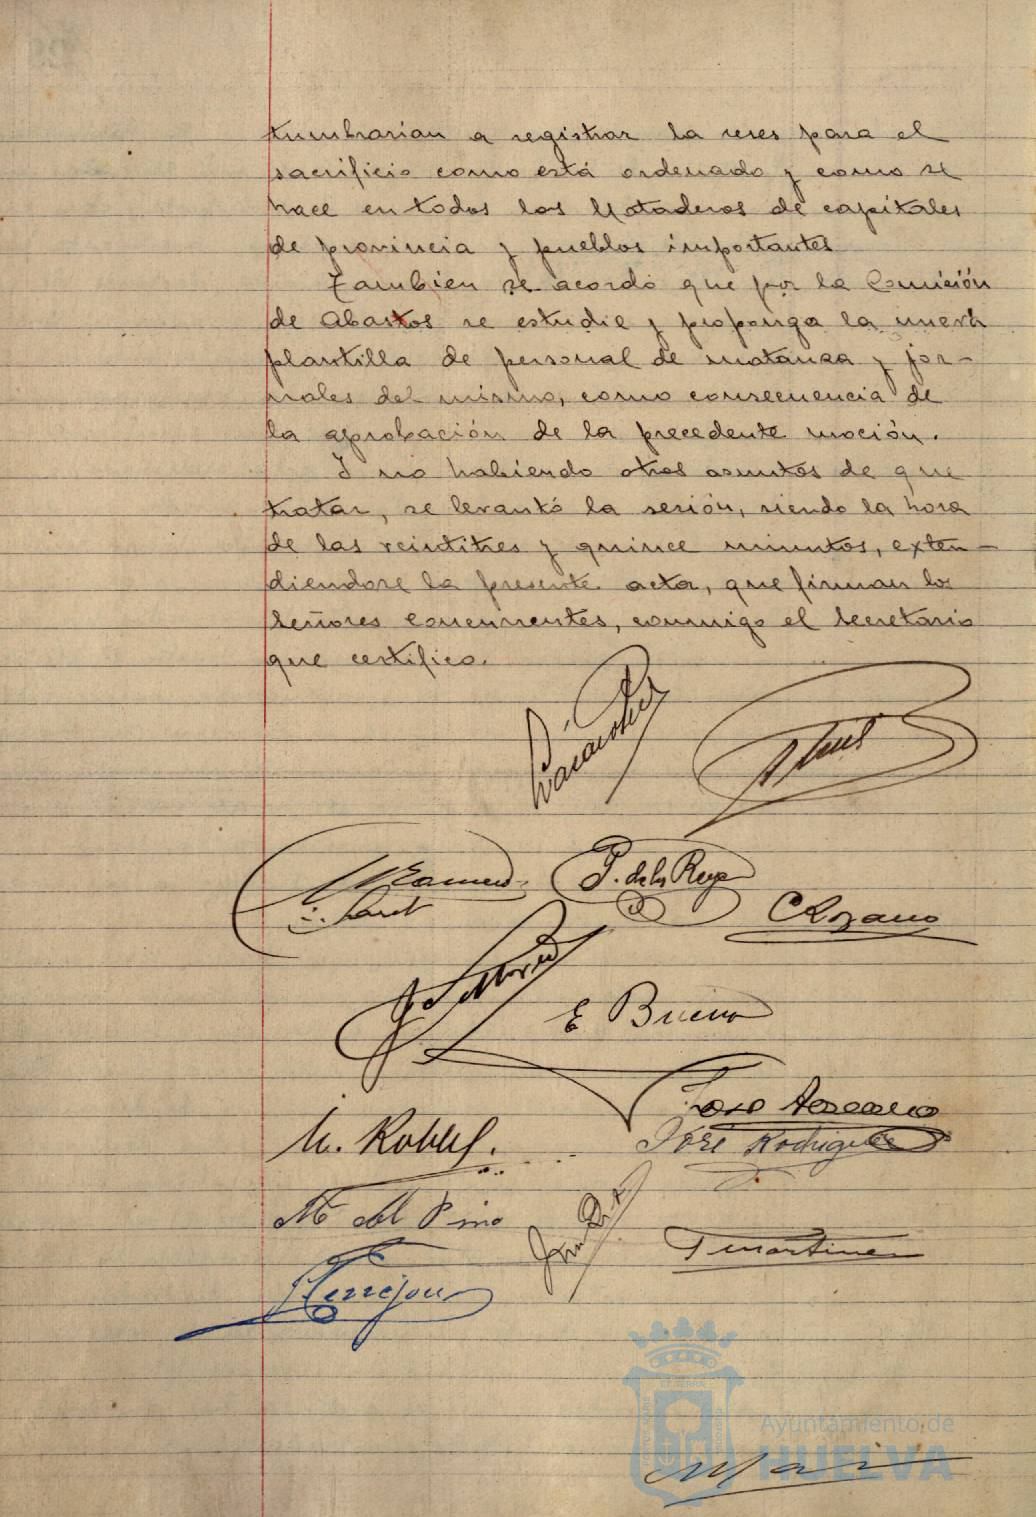 tumbrarian a registrar la reses para el
sacrificio como está ordenado y como se
hace en todos los Mataderos de capitales
de provincia y pueblos importantes
Tambien se acordó que por la Comisión
de Abastos se estudie y proponga la nueva
plantilla de personal de matanza y jor-
nales del mismo, como consecuencia de
la aprobación de la precedente moción.
Y no habiendo otros asuntos de que
tratar, se levantó la sesión, siendo la hora
de las veintitres y quince minutos, exten-
diendose la presente acta, que firman los
Señores concurrentes, conmigo el Secretario
que certifico.
P. de la Rosa
C Lozano
E Bueno
José Rodriguez
M del Pino
T Martinez
Terrejon
Ayuntamiento de
HUELVA